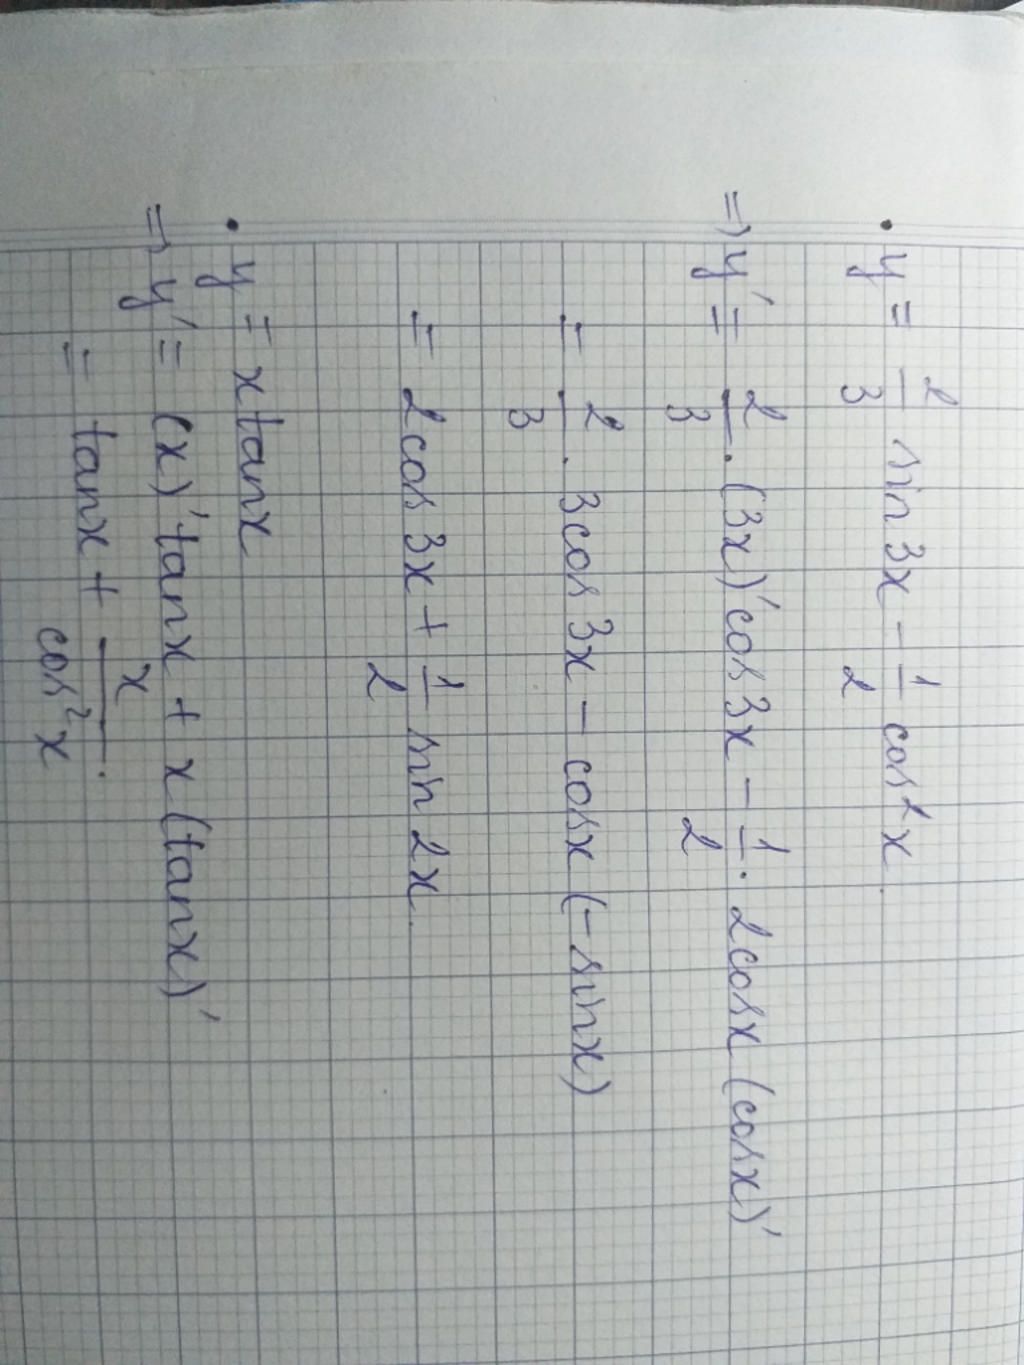 • y = 2/3 sin 3x - 1/2 cos²x.
=> y' = 2/3 . (3x)' cos 3x - 1/2 . 2cosx (cosx)'
= 2/3 . 3cos 3x - cosx (-sinx)
= 2cos 3x + 1/2 sin 2x.
• y = x tanx
=> y' = (x)' tanx + x (tanx)'
= tanx + x/cos²x.